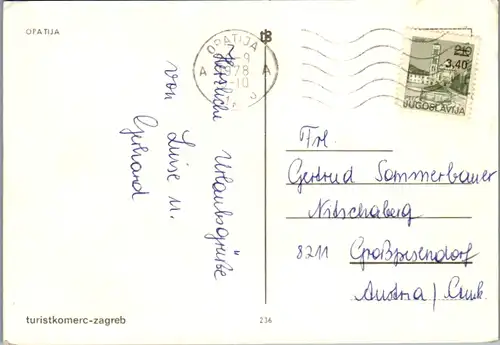 OPATIJA
tB
OPATIJA
1978
A A
2.10
3,40
JUGOSLAVIJA
Herzliche Urlaubsgrüße
von
Luise u.
Gerhard
Frl.
Gertrud Sommerbauer
Nitschaberg
8211 Großpesendorf
Austria /
turistkomerc-zagreb
236